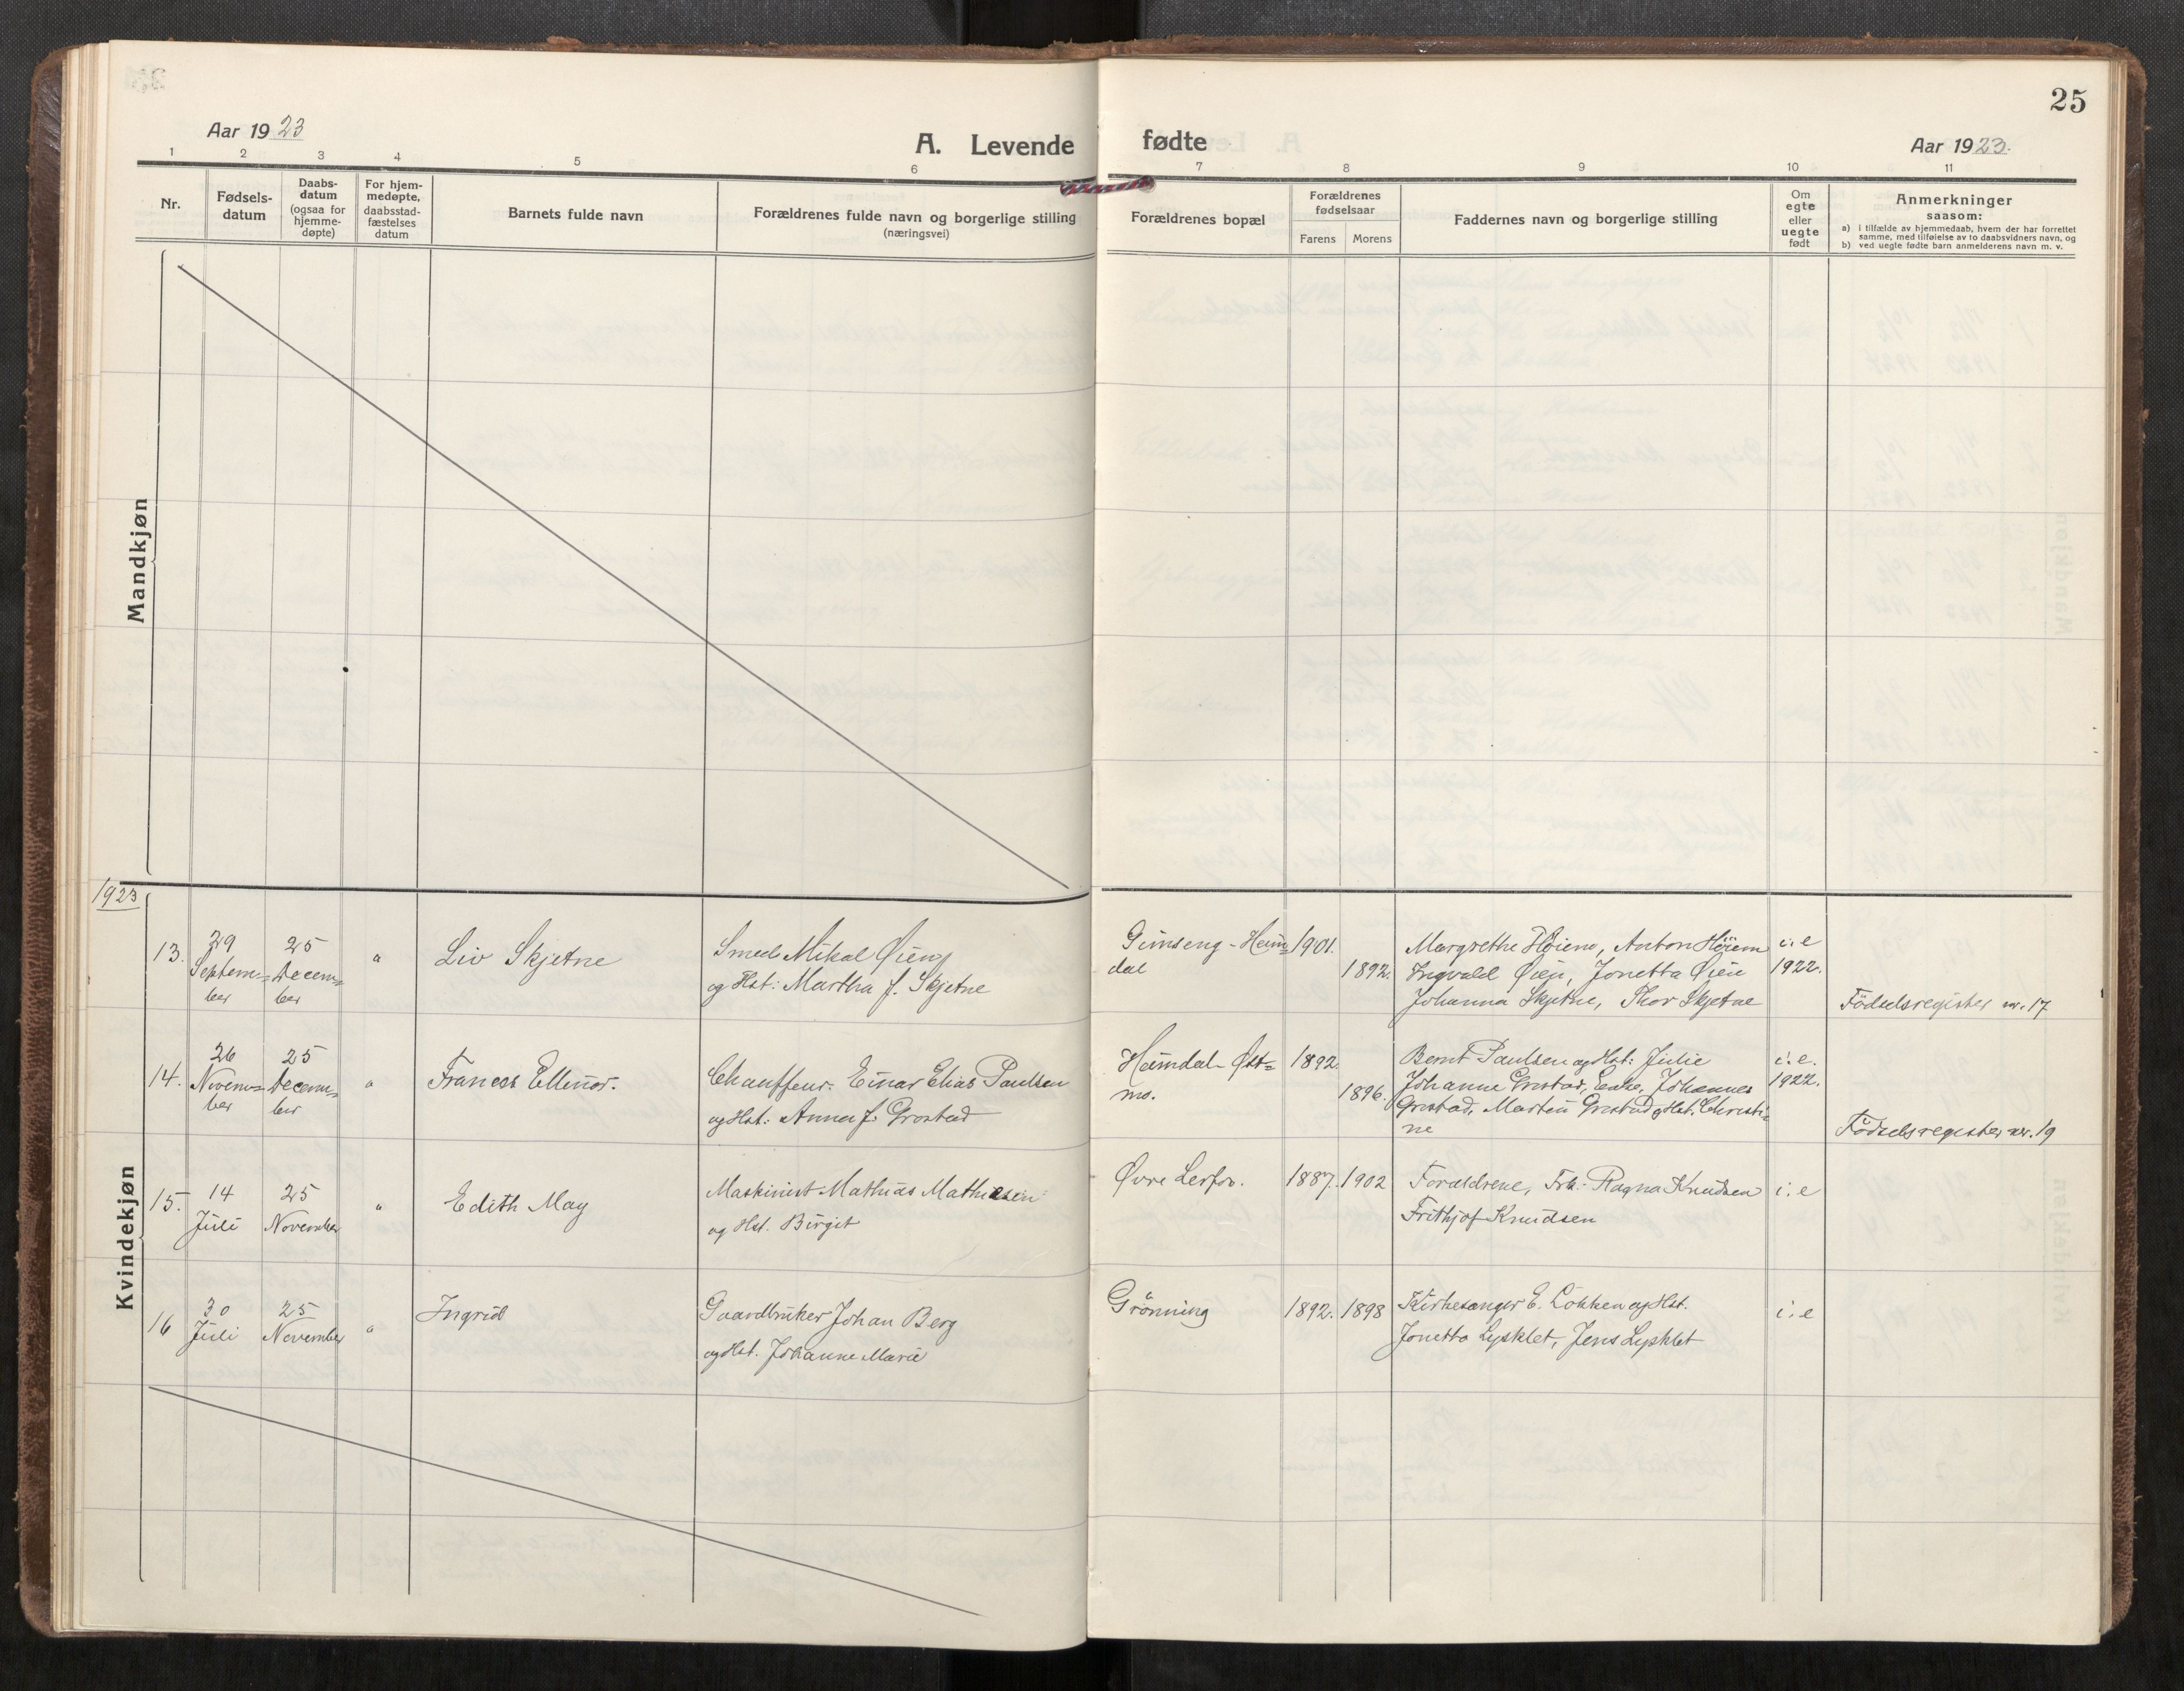 25
Aar 1923
A. Levende fødte
Aar 1923.
1 2 3 4 5 6 7 8 9 10 11
Nr.
Fødsels-
datum
Daabs-
datum
(ogsaa for
hjemme-
døpte)
For hjem-
medøpte,
daabsstad-
fæstelses
datum
Barnets fulde navn
Forældrenes fulde navn og borgerlige stilling
(næringsvei)
Forældrenes bopæl
Forældrenes
fødselsaar
Farens Morens
Faddernes navn og borgerlige stilling
Om
egte
eller
uegte
født
Anmerkninger
saasom:
a) i tilfælde av hjemmedaab, hvem der har forrettet
samme, med tilføielse av to daabsvidners navn, og
b) ved uegte fødte barn anmelderens navn m. v.
Mandkjøn
Kvindekjøn
1923
13.
29
Septem=
ber
25
Decem=
ber
"
Liv Skjetne
Smed Mikal Øien
og Hst: Martha f. Skjetne
Heim=
dal
1901.
1892.
Margrethe Høiem, Anton Høiem
Ingvald Øien, Jonetta Øien
Johanna Skjetne, Thor Skjetne
i. e
1922.
Födselsregister nr. 17
14.
26
Novem=
ber
25
Decem=
ber
"
Frances Ellinor.
Chauffeur. Einar Elias Paulsen
og Hst: Anna f. Grostad
Heimdal- Øst=
mo.
1892.
1896.
Bernt Paulsen og Hst: Julie
Johanne Grostad, Enke, Johannes
Grostad, Martin Grostad og Hst. Christi=
ne
i. e.
1922.
Födselsregister nr. 19
15.
14
Juli
25
November
"
Edith May
Maskinist Mathias Mathiesen
og Hst. Birgit
Øvre Lerfos.
1887. 1902
Forældrene, Frk. Ragna Knudsen
Frithjof Knudsen
i. e
16
30
Juli
25
November
"
Ingrid
Gaardbruker Johan Berg
og Hst. Johanne Marie
Grönning
1892. 1898
Kirkesanger E. Lökken og Hst.
Jonetta Lysklet, Jens Lysklet
i. e